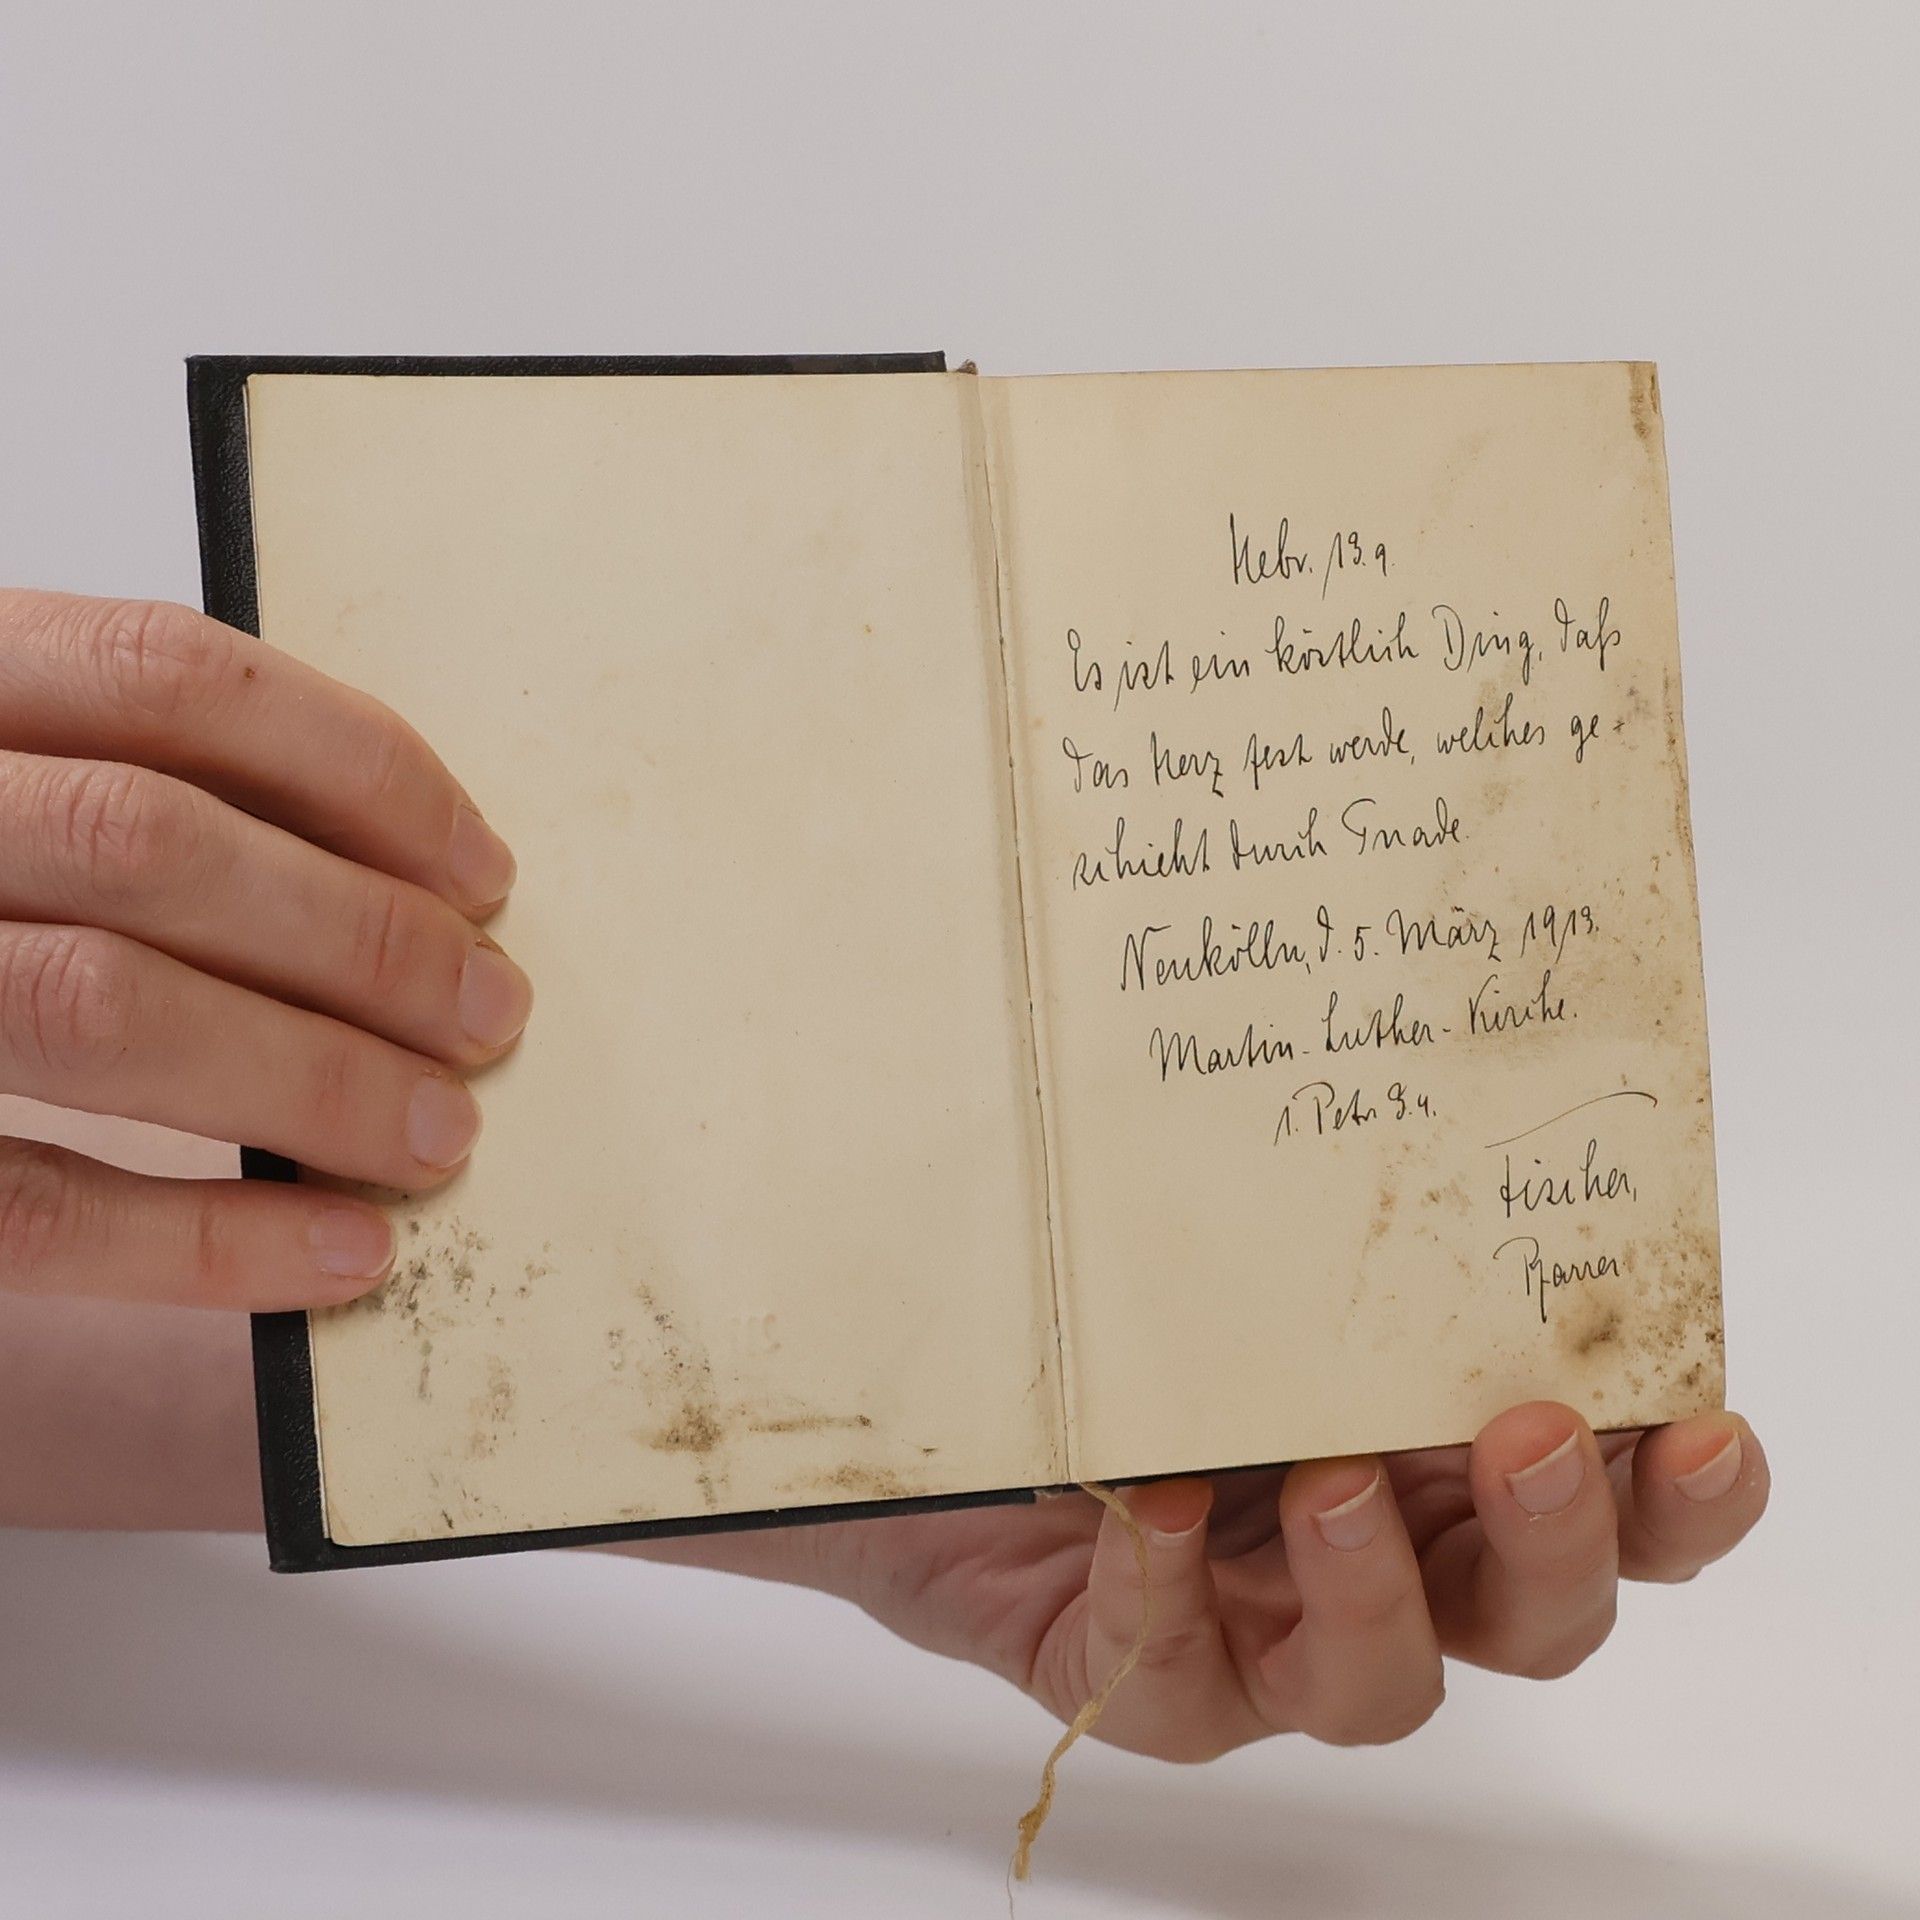 Hebr. 13.9.
Es ist ein köstlich Ding, daß
das Herz fest werde, welches ge-
schieht durch Gnade.
Neukölln, d. 5. März 1913.
Martin-Luther-Kirche.
1. Petr 3.4.
Fischer,
Pfarrer